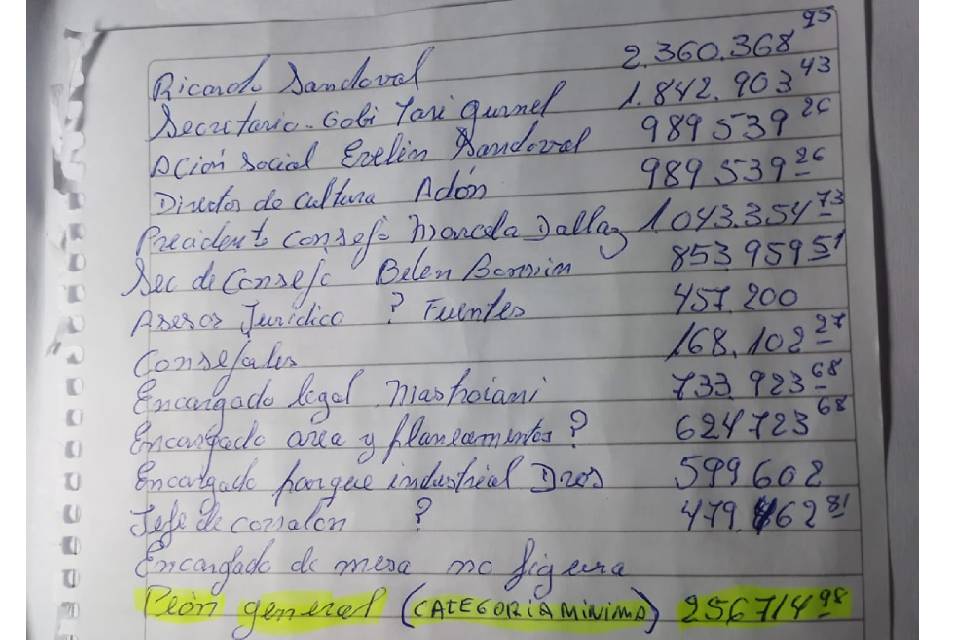 Ricardo Sandoval 2.360.368 95
Secretario. Gobi Yari Gurnel 1.842.903 43
Acion social Evelin Sandoval 989539 26
Director de cultura Adón 989539 26
Preaidento consejo Marcela Dallaz 1043.354 73
Sec de Consejo Belen 853.959 51
Asesor Juridico ? Fuentes 457.200
Consejales 168.102 27
Encargado legal Mashoiani 733.923 68
Encargado area y planeamintos ? 624723 68
Encargado parque industrial Dros 599602
Jefe de corralon ? 479.462 81
Encargado de mesa no figura
Peón general (CATEGORIA MINIMA) 256714 98